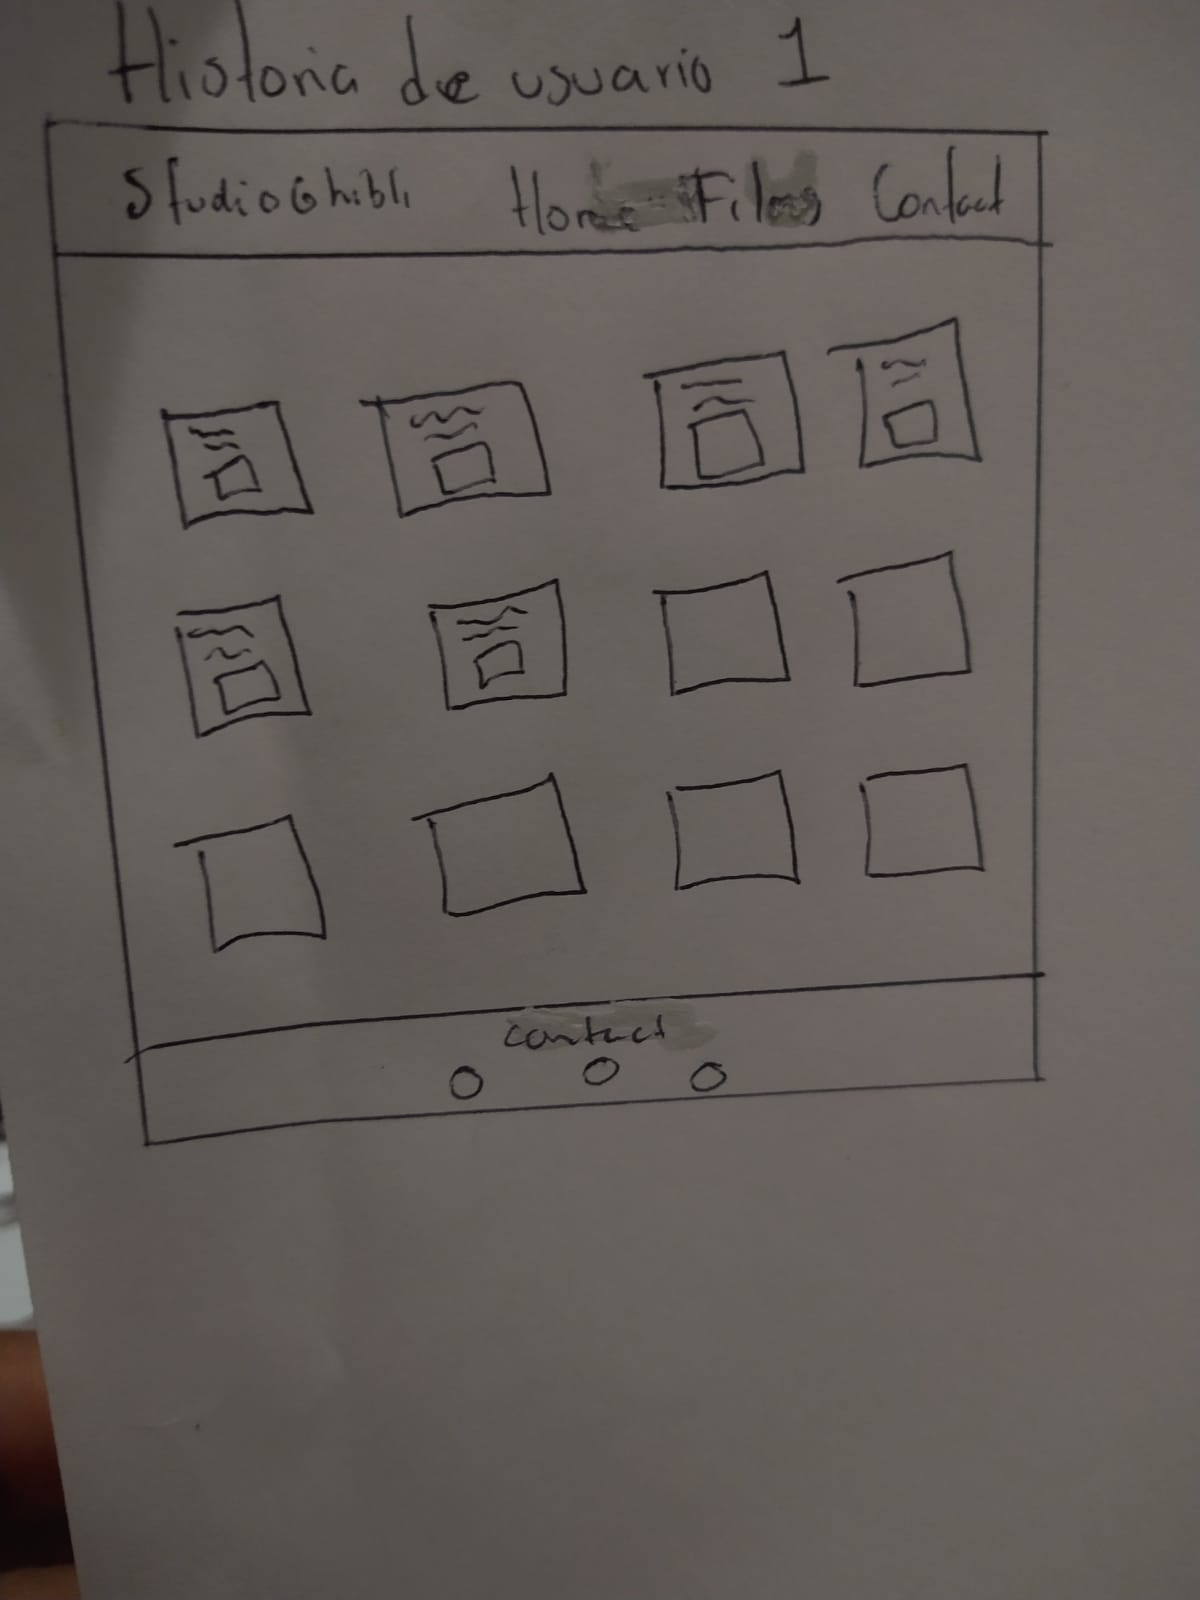 Historia de usuario 1
Studio Ghibli Home Films Contact
contact